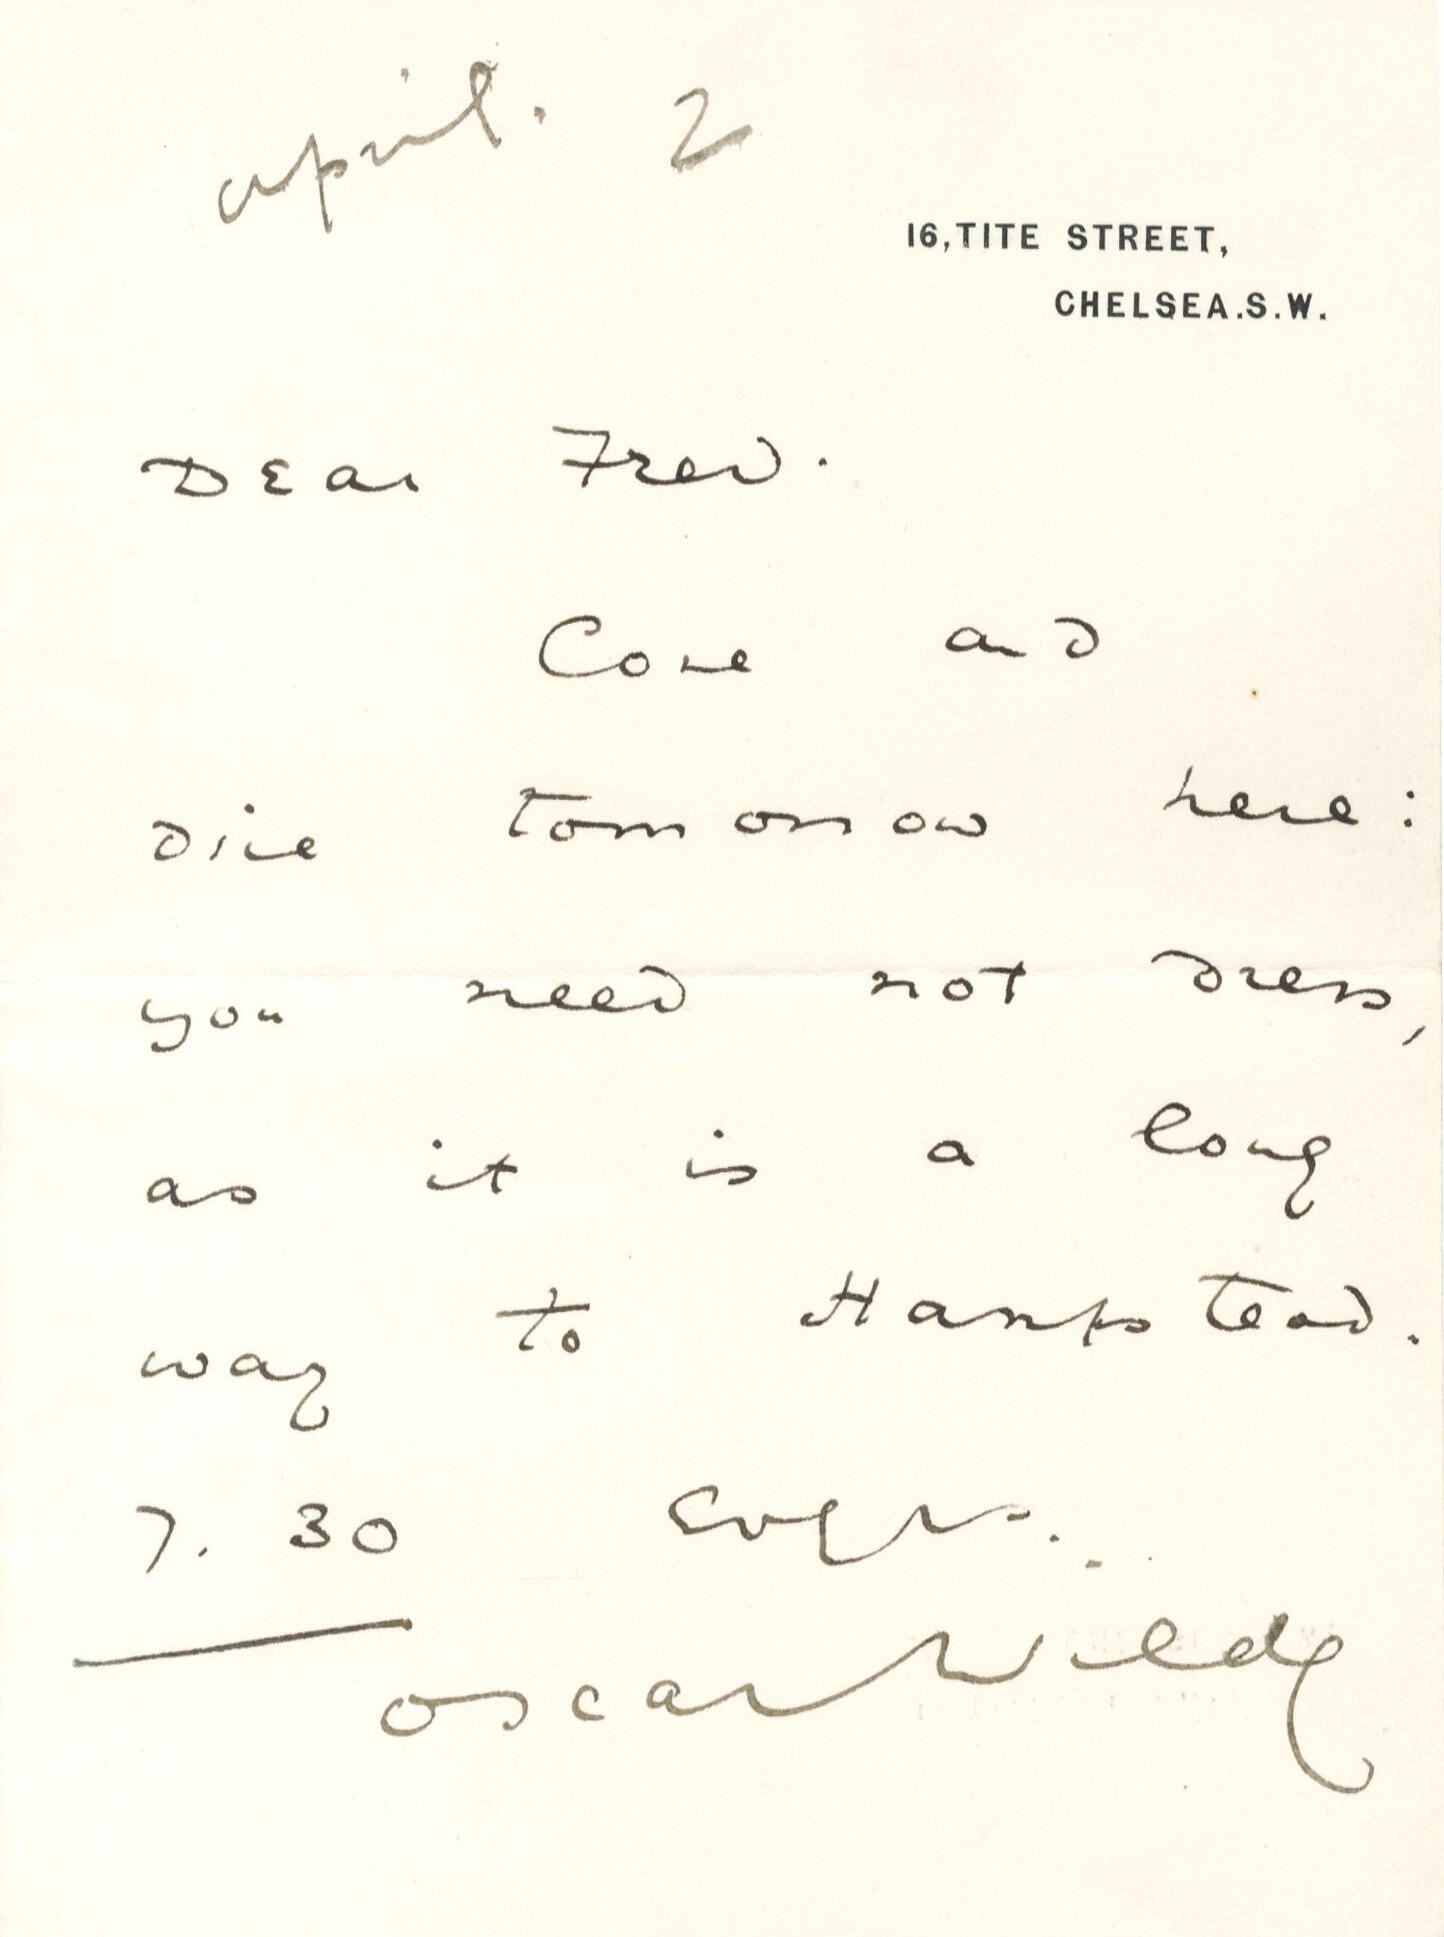 April. 2
16, TITE STREET,
CHELSEA. S. W.
Dear Fred.
Come and
dine tomorrow here:
you need not dress,
as it is a long
way to Hampstead.
7. 30
Oscar Wilde